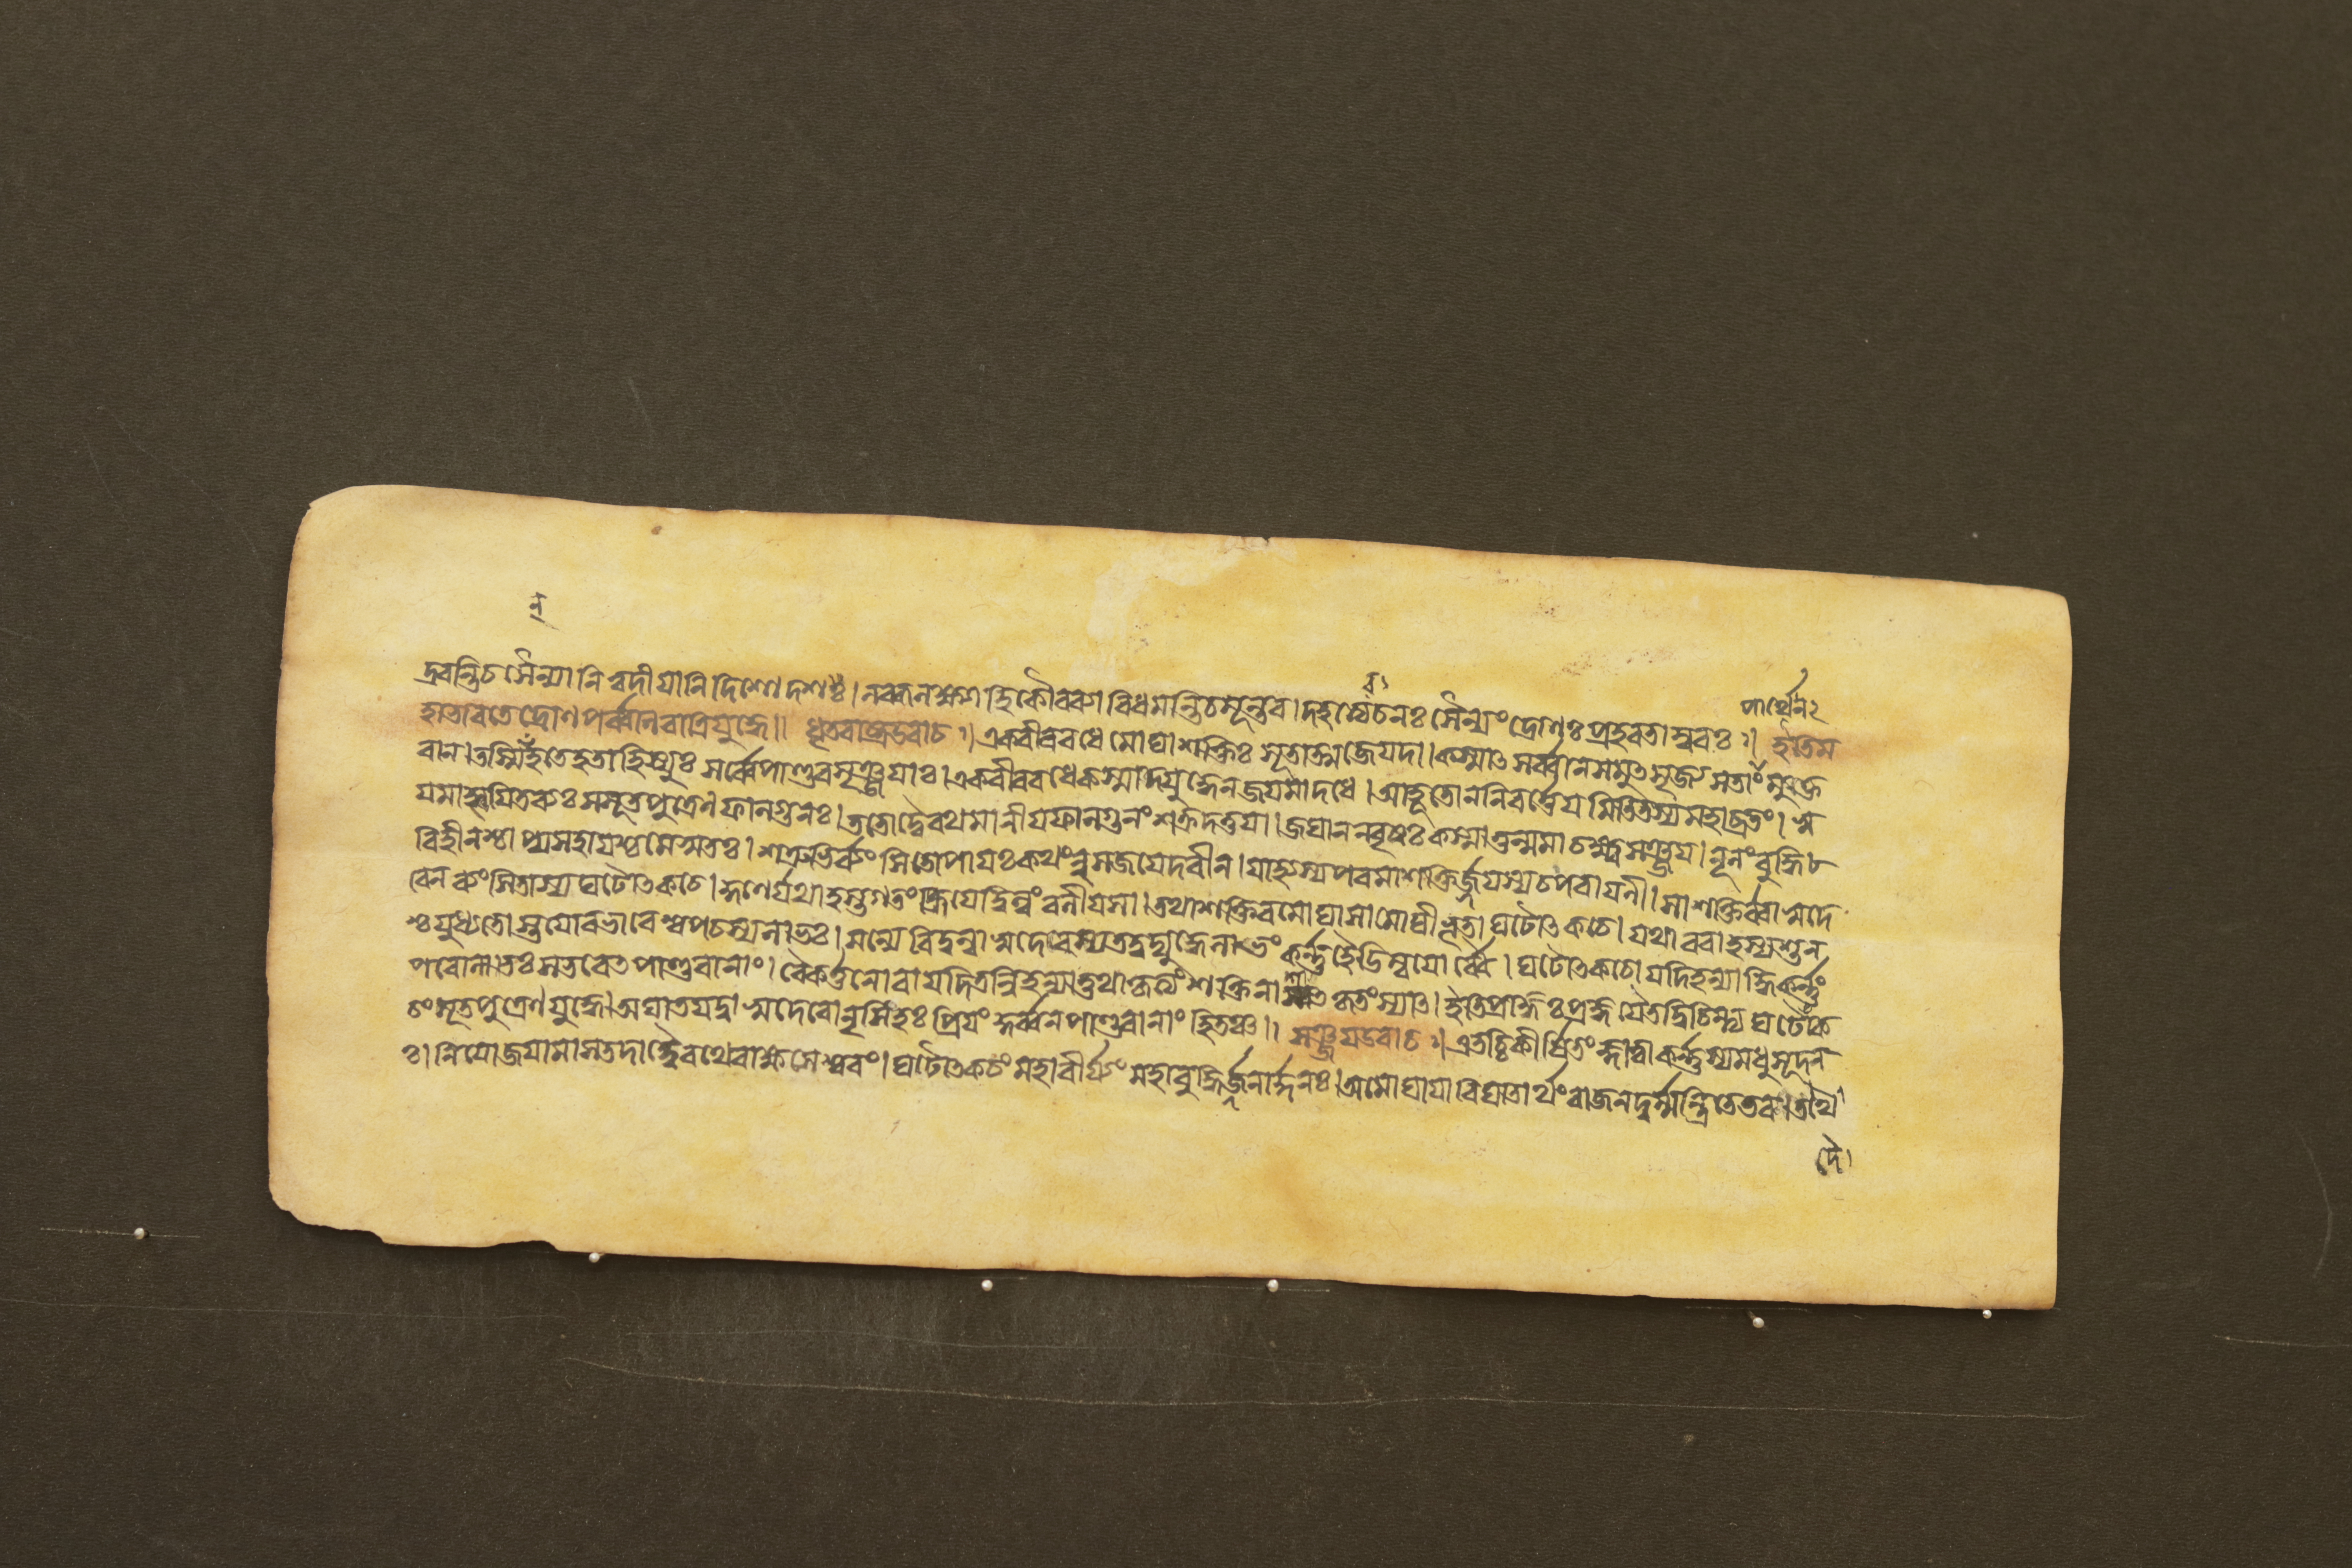 ন্
দ্রবন্তিচসৈন্যানিত্বদীযানিদিশোদশঃ।নব্ধনক্ষণাহিকৌরবাণাবিধমন্তিচমূন্তব।দহত্যেষচনঃসৈন্যংদ্রোণঃপ্রহরতাম্বরঃ॥ইতিম
পার্থেন২
হাভারতেদ্রোণপর্ব্বনিরাত্রিযুদ্ধে॥ ধৃতরাষ্ট্রউবাচ॥একবীরবধেমোঘাশক্তিঃসূতাত্মজেযদা।কস্মাৎসর্ব্বানসমুৎসৃজ্যসতাংমুক্ত
বান।তস্মিন্হতেহতাহিস্যুঃসর্ব্বেপাণ্ডবসৃঞ্জযাঃ।একবীরবধেকস্মাদ্যুদ্ধেনজযমাদধে।আহূতোননিবর্ত্তেযমিতিতস্যমহাব্রতং।স্ব
যমাহ্বযিতব্যঃসসূতপুত্রেনফাল্গুনঃ।ততোদ্বৈরথমানীযফাল্গুনংশক্রদত্তযা।জঘাননবৃষঃকস্মাত্তন্মমাচক্ষ্বসঞ্জয।নূনংবুদ্ধি
বিহীনশ্চাপ্যসহাযশ্চমেসুতঃ।শত্রুভির্ব্যংসিতোপাযঃকথংনুসজযেদরীন।যাহ্যস্যপরমাশক্তির্জ্জযস্যচপরাযনী।সাশক্তির্ব্বাসুদে
বেনব্যংসিতাস্যঘটোৎকচে।কুণের্যথাহস্তগতংহ্রিযেদ্বিল্বংবলীযসা।তথাশক্তিরমোঘাসামোঘীভূতাঘটোৎকচে।যথাবরাহস্যশুন
শ্চযুধ্যতোস্তযোরভাবেশ্বপচস্যলাভঃ।মন্যেবিদ্বন্বাসুদেবস্যতদ্বদ্যুদ্ধেলাভংকর্ন্নহৈডিম্বযোর্ব্বৈ।ঘটোৎকচোযদিহন্যাদ্ধিকর্ন্নং
পরোলাভঃসভবেতপাণ্ডবানাং।বৈকর্তনোবাযদিতন্নিহন্যাত্তথাকৃত্যংশক্তিনাশাৎকৃতংস্যাৎ।ইতিপ্রাজ্ঞঃপ্রজ্ঞযৈতদ্বিচিন্ত্যঘটোৎক
চংসূতপুত্রেণযুদ্ধে।অঘাতযদ্বাসুদেবোনৃসিংহঃপ্রিযংকুর্ব্বনপাণ্ডবানাংহিতঞ্চ॥ সঞ্জযউবাচ॥এতচ্চিকীর্ষিতংজ্ঞাত্বাকর্ন্নস্যমধুসূদন
ঃ।নিযোজযামাসতদাদ্বৈরথেরাক্ষসেশ্বরং।ঘটোৎকচংমহাবীর্য্যংমহাবুদ্ধির্জ্জনার্দ্দনঃ।অমোঘাযাবিঘাতার্থংরাজনদুর্ম্মন্ত্রিতেতব।তথৈ